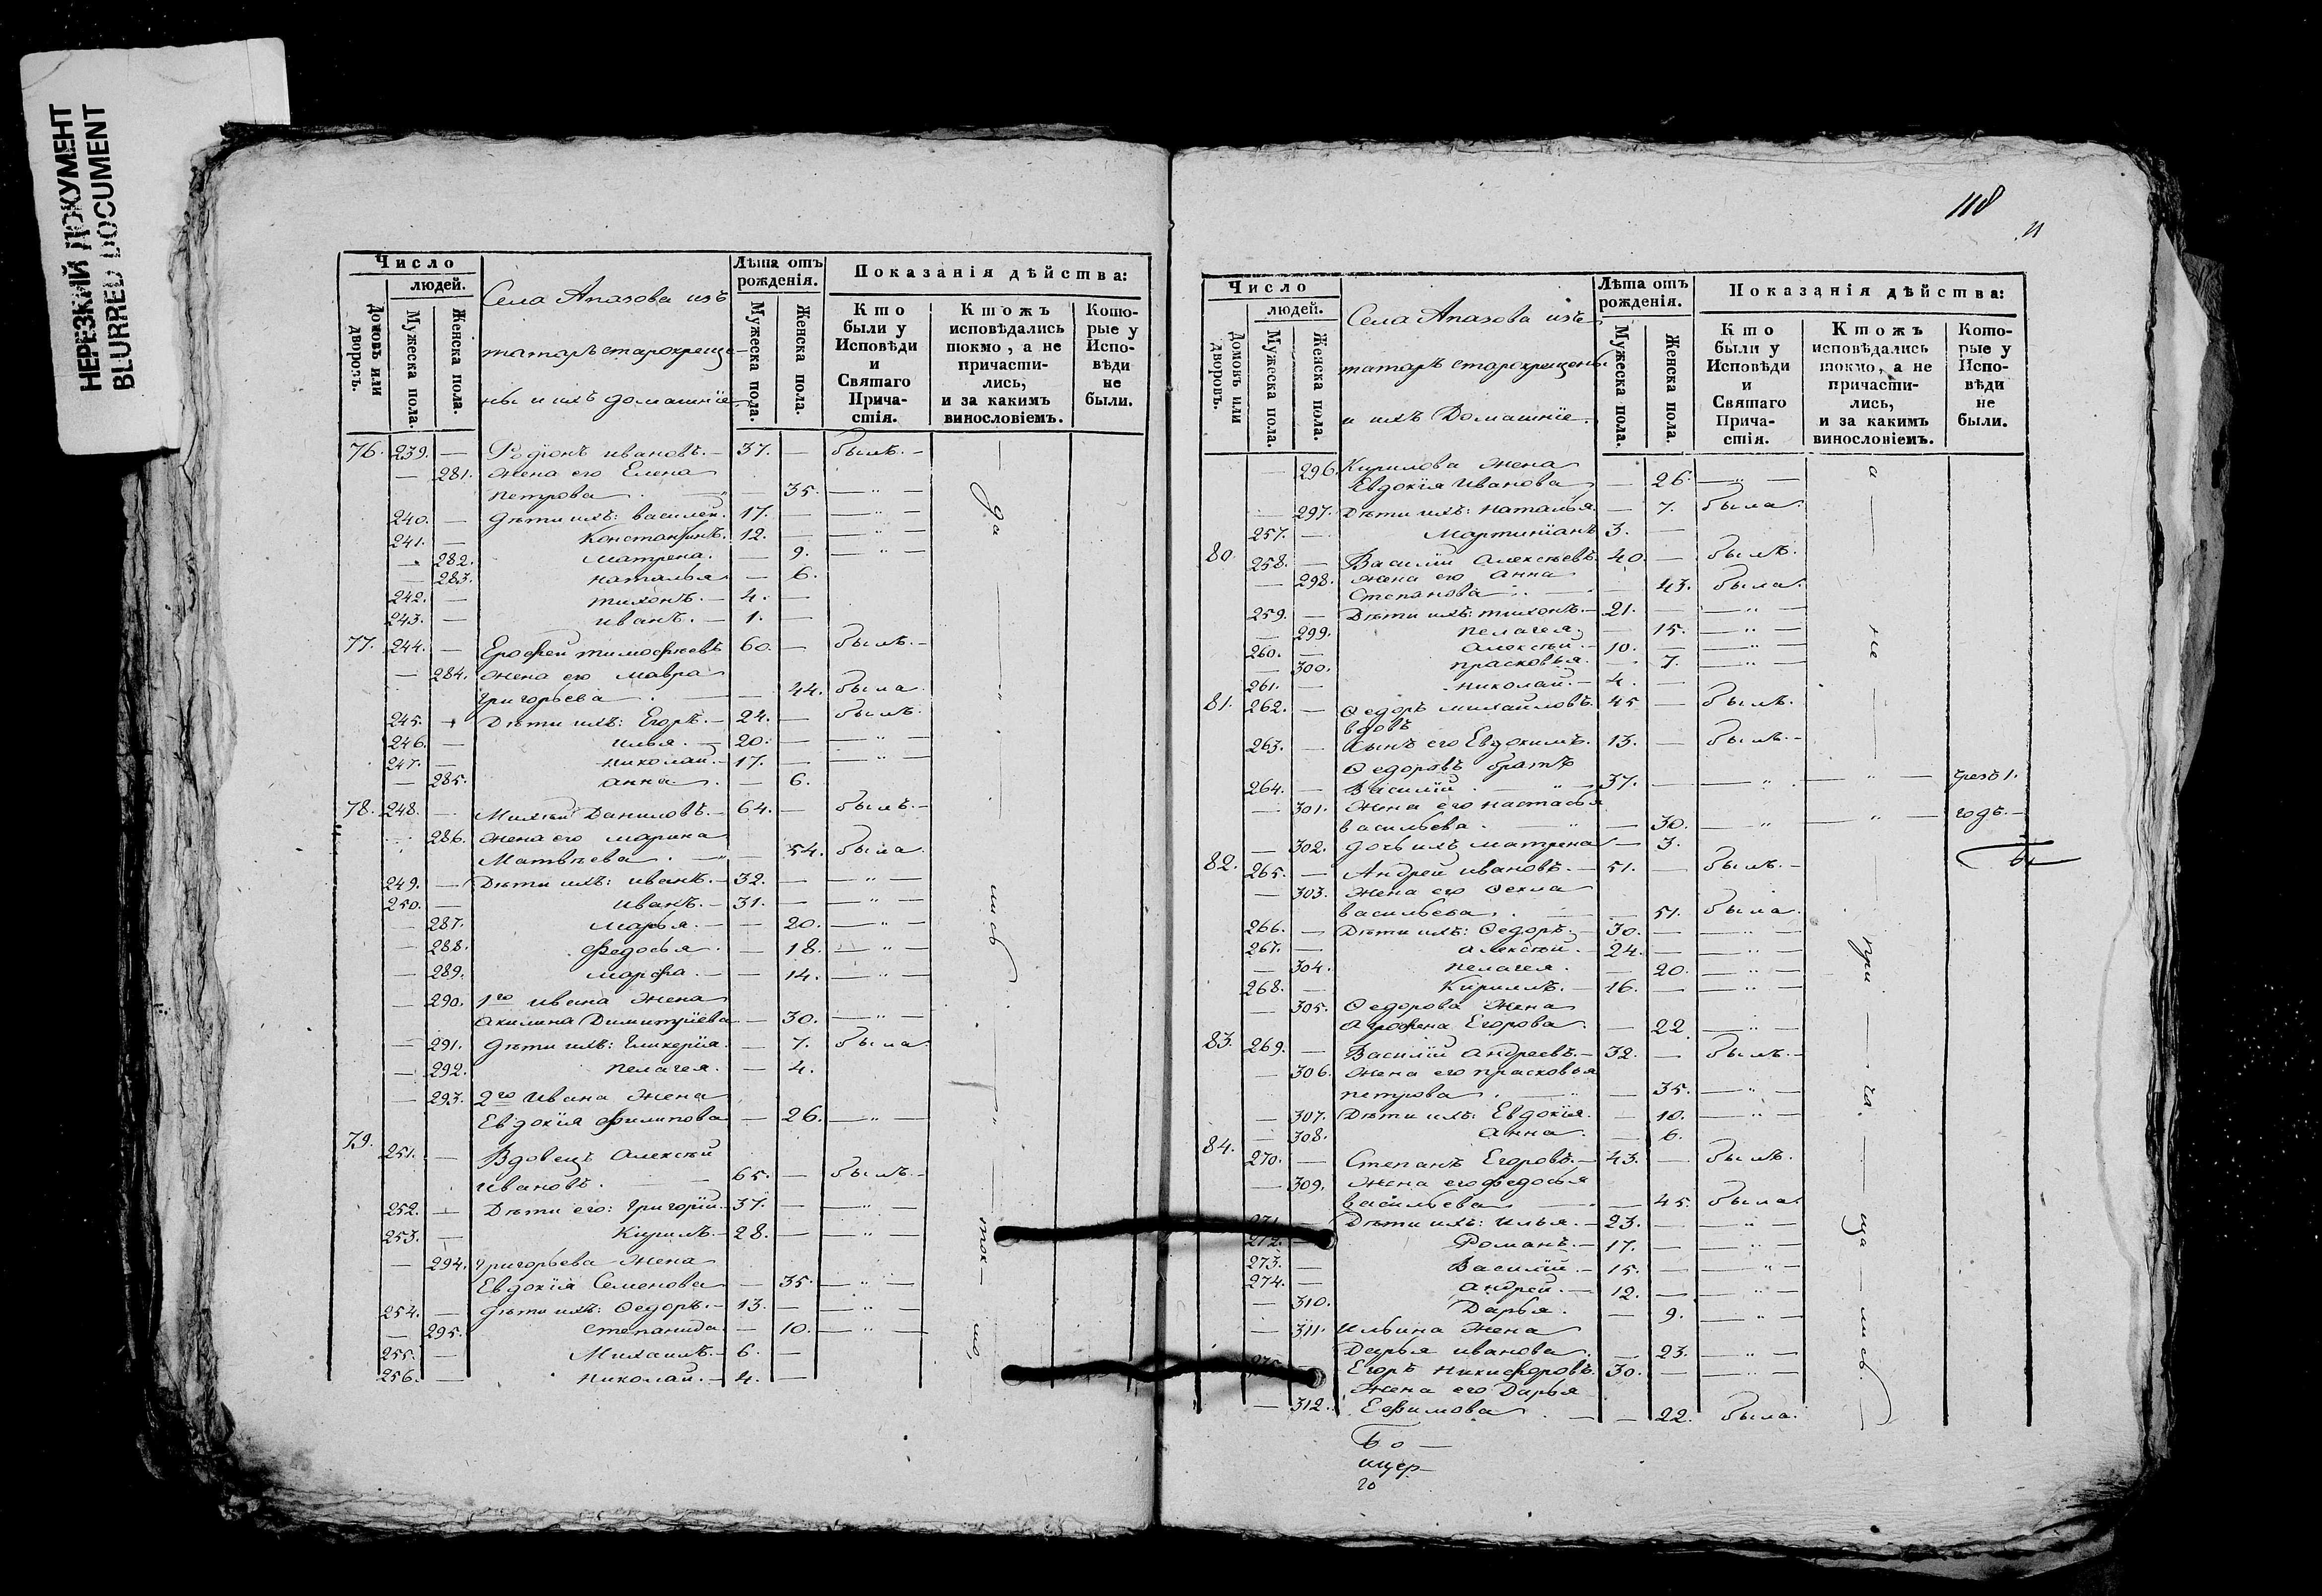 НЕРЕЗКИЙ ДОКУМЕНТ
BLURRED DOCUMENT
Число
людей.
Домовъ или дворовъ.
Мужеска пола.
Женска пола.
Села Апазова изъ
татаръ старокреще-
ны и ихъ домашніе
Лѣта отъ рожденія.
Мужеска пола.
Женска пола.
Показанія дѣйства:
Кто были у Исповѣди и Святаго Причастія.
Ктожъ исповѣдались токмо, а не причастились, и за какимъ винословіемъ.
Которые у Исповѣди не были.
76. 239. — Родіонъ ивановъ. — 37. — былъ. —
— 281. жена его Елена
петрова. — " — 35. — " —
240. — дѣти ихъ: василей. 17. — — " —
241. — Константинъ. 12. — — " —
— 282. матрена. — 9. — " —
— 283. наталья — 6.
242. — тихонъ. — 4. —
243. — иванъ. — 1. —
77. 244. — Ерофей тимофѣевъ 60. — былъ. —
— 284. жена его мавра
григорьева — 44. была.
245. — Дѣти ихъ: Егоръ. — 24. — былъ.
246. — илья. — 20. — — " —
247. — николай. — 17. — — " —
— 285. анна. — 6.
78. 248. — Михѣй Даниловъ. — 64. — былъ. —
— 286. жена его марина
Матвѣева. — " — 54. была.
249. — Дѣти ихъ: иванъ. — 32. — — " —
250. — иванъ. — 31. — — " —
— 287. марья. — — 20. — " —
— 288. федосья. — 18. — " —
— 289. марфа. — — 14. — " —
— 290. 1го ивана жена
акилина Димитріева — 30. — " —
— 291. дѣти ихъ: гликерія. — 7. была.
— 292. пелагея. — — 4.
— 293. 2го ивана жена
Евдокія филипова — 26. — " —
79. 251. — Вдовецъ алексѣй
ивановъ. — 65. — былъ. —
252. — Дѣти его: григорій. — 37. — — " —
253. — Кирилъ. — 28. — — " —
— 294. григорьева жена
Евдокія Семенова — 35. — " —
254. — дѣти ихъ: Ѳедоръ. — 13. — — " —
— 295. степанида. — 10. — " —
255. — Михаилъ. — 6. —
256. — николай. — 4. —
лись
ток — мо,
118
Число
людей.
Домовъ или дворовъ.
Мужеска пола.
Женска пола.
Села Апазова изъ
татаръ старокрещены
и ихъ Домашніе.
Лѣта отъ рожденія.
Мужеска пола.
Женска пола.
Показанія дѣйства:
Кто были у Исповѣди и Святаго Причастія.
Ктожъ исповѣдались токмо, а не причастились, и за какимъ винословіемъ.
Которые у Исповѣди не были.
— 296. Кирилова жена
Евдокія иванова — 26. — " —
— 297. Дѣти ихъ: наталья. — 7. была.
257. — мартиніанъ 3. —
80. 258. — Василій алексѣевъ. 40. — былъ.
— 298. жена его анна
Степанова. — 43. была.
259. — Дѣти ихъ: тихонъ. — 21. — — " —
— 299. пелагея. — 15. — " —
260. — алексѣй. — 10. — — " —
— 300. прасковья. — 7. — " —
261. — николай. — 4. —
81. 262. — Ѳедоръ михайловъ. 45 — былъ.
вдовъ
263. — сынъ его Евдокимъ. 13. — былъ. —
Ѳедоровъ братъ
264. — Василій. — " — 37. — — " — — " — чрезъ 1.
— 301. жена его настасья
васильева. — " — 30. — " — — " — годъ. —
— 302. дочь ихъ матрена — 3.
82. 265. — Андрей ивановъ. — 51. — былъ. —
— 303. жена его Ѳекла
васильева. — 51. была.
266. — Дѣти ихъ: Ѳедоръ. — 30. — — " —
267. — алексѣй. — 24. — — " —
— 304. пелагея. — 20. — " —
268. — Кирилъ. — 16. — — " —
— 305. Ѳедорова жена
агрофена Егорова. — 22. — " —
83. 269. — Василій андреевъ. — 32. — былъ. —
— 306. жена его прасковья
петрова. — " — 35. — " —
— 307. Дѣти ихъ: Евдокія. — 10. — " —
— 308. анна. — 6.
84. 270. — Степанъ Егоровъ. — 43. — былъ.
— 309. жена его федосья
васильева — 45. была.
271. — Дѣти ихъ: илья. — 23. — — " —
272. — Романъ. — 17. — — " —
273. — Василій. — 15. — — " —
274. — андрей. — 12. — — " —
— 310. Дарья. — 9. — " —
— 311. ильина жена
Дарья иванова. — 23. — " —
275. — Егоръ никифоровъ. 30. — — " —
жена его Дарья
— 312. Ефимова. — — 22. была.
а — не — при — ча. — ща — лись. —